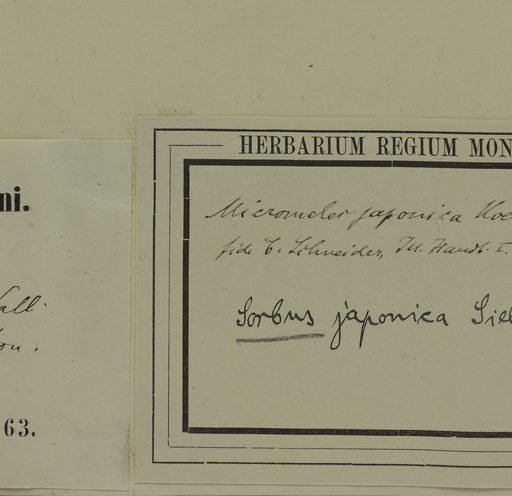 ni.
all.
on.
63.
HERBARIUM REGIUM MON
Micromeles japonica Koe
fide C. Schneider, Ill. Handb. I.
Sorbus japonica Sieb